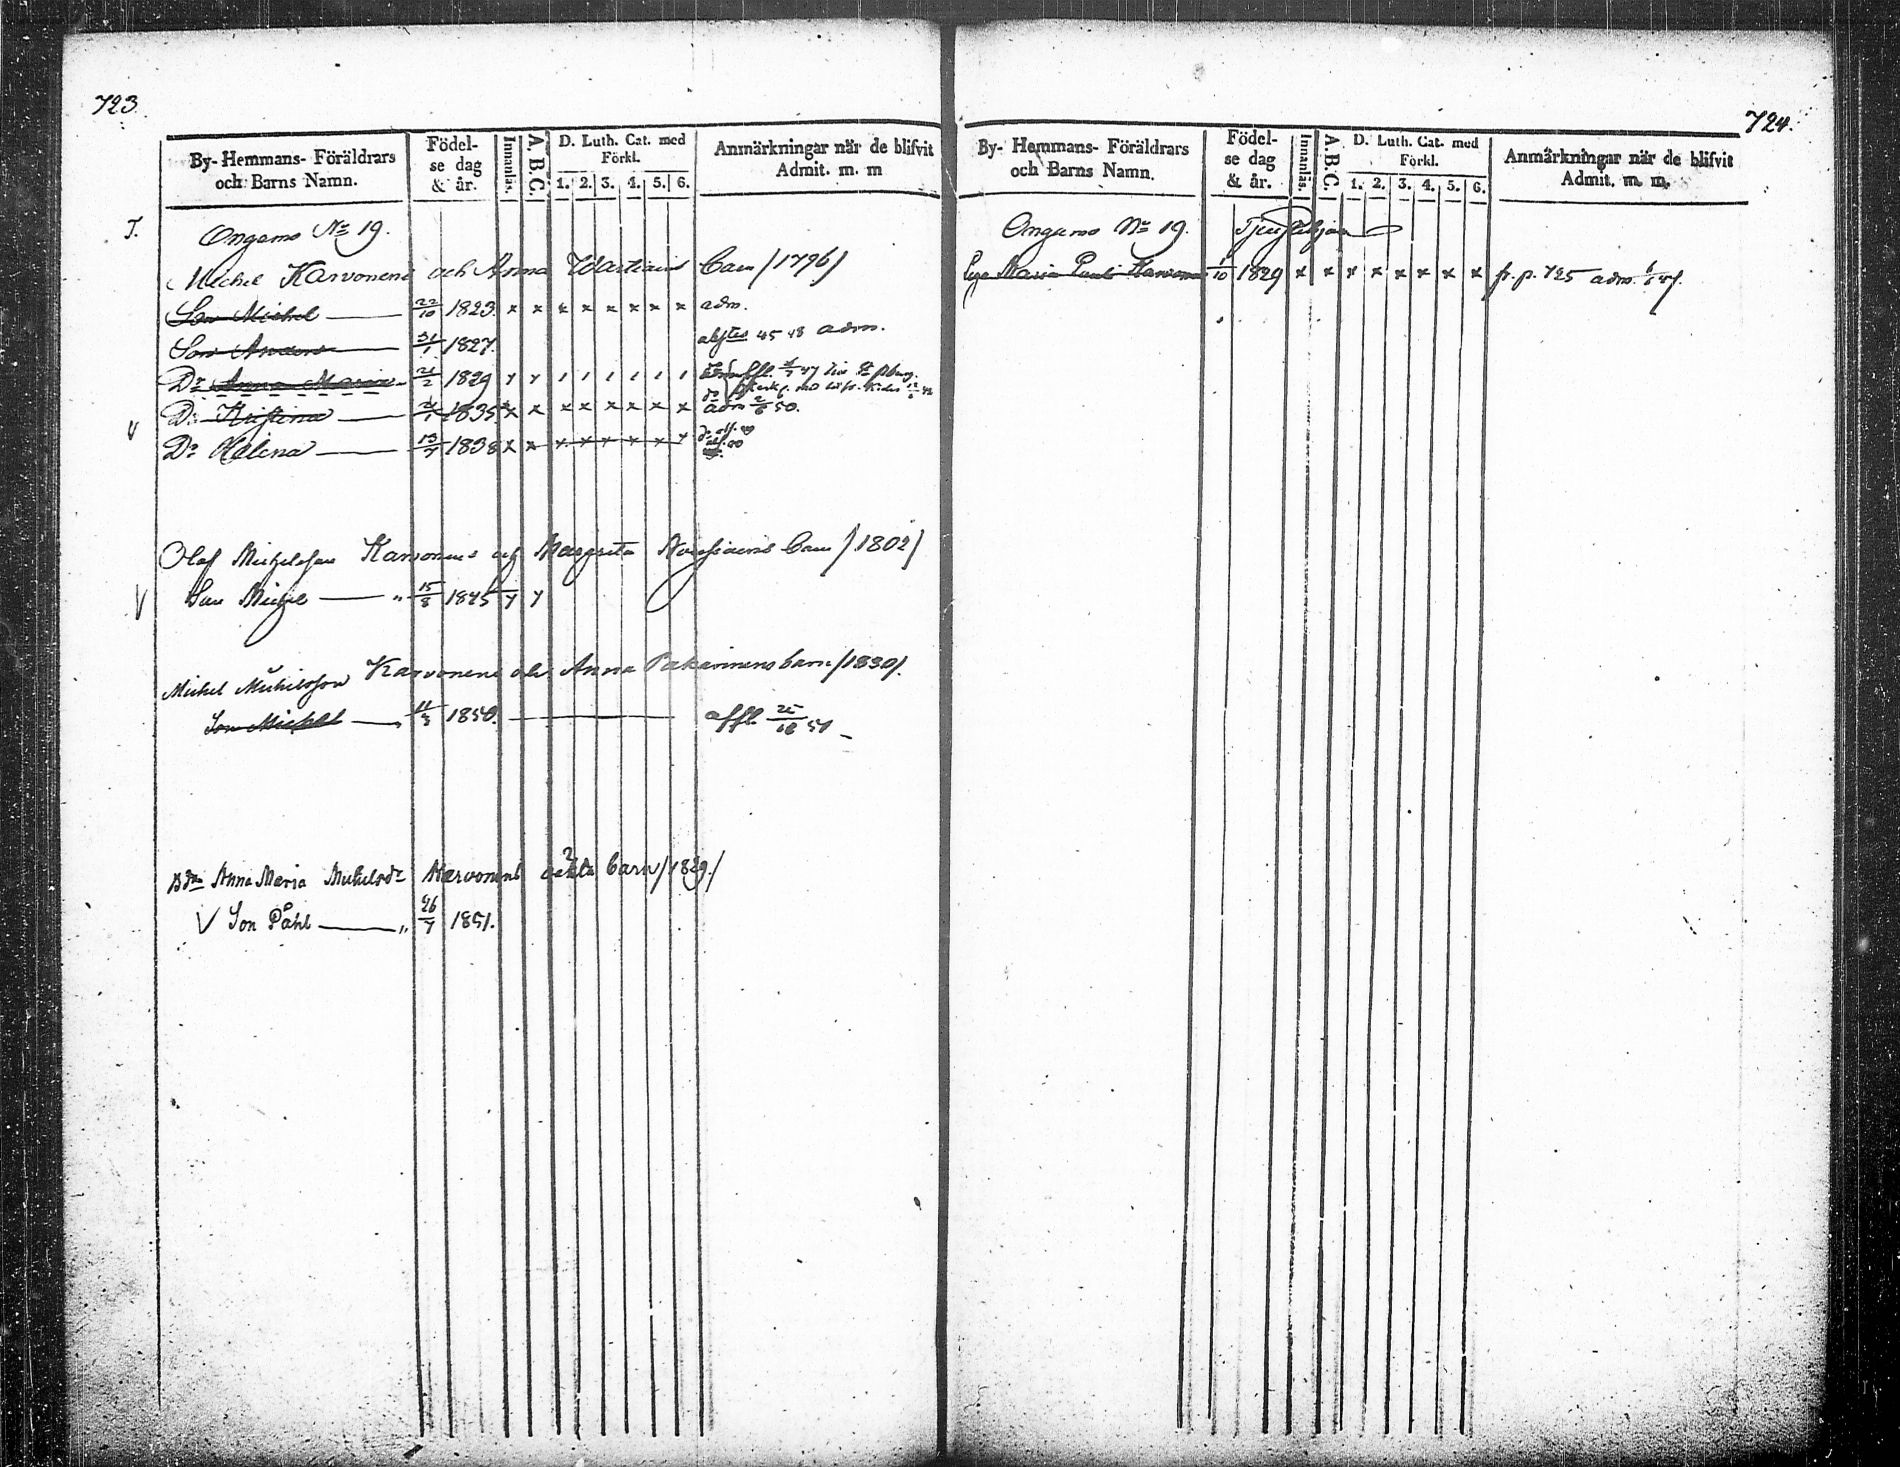 723.
By- Hemmans- Föräldrars och Barns Namn.
Födelse dag & år.
Innanläs.
A. B. C.
D. Luth. Cat. med Förkl.
1. 2. 3. 4. 5. 6.
Anmärkningar när de blifvit Admit. m. m
T.
Ongamo No 19.
Michel Karvonens och Anna Wartiains barn /1796/
Son Michel 22/10 1823. x x x x x x x x adm.
Son Anders 31/1 1827. 45 48 adm.
Dr Anna Maria 21/2 1829
Dr Kristina 1835. x x x x x x x x adm 50.
V Dr Helena 13/7 1838 x x x x x x x x
Olof Michelsson Karvonens och Margreta barn /1802/
V Son Michel " 15/8 1845
Michel Michelsson Karvonens och Anna Pakarinens barn /1830/.
Son Michel " 11/3 1850. affl. 51
Anna Maria Michelsdr Karvonens barn /1829./
V Son Påhl " 26/7 1851.
724.
By- Hemmans- Föräldrars och Barns Namn.
Födelse dag & år.
Innanläs.
A. B. C.
D. Luth. Cat. med Förkl.
1. 2. 3. 4. 5. 6.
Anmärkningar när de blifvit Admit. m. m.
Ongamo No 19.
Maria Karvonen 1/10 1829 x x x x x x x x fr. p. 725 adm.